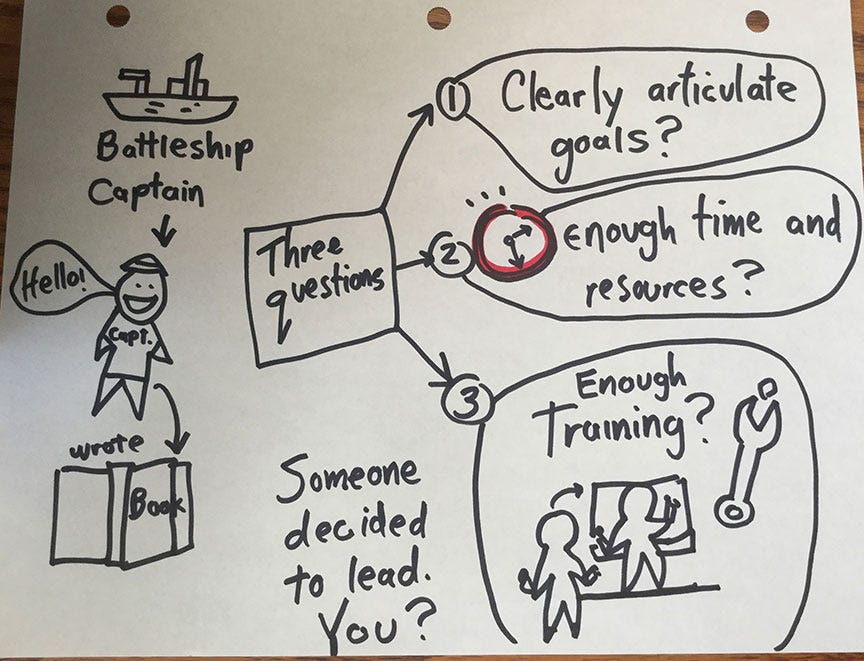 Battleship
Captain
Hello!
Capt.
wrote
Book
Three
questions
1
Clearly articulate
goals?
2
enough time and
resources?
3
Enough
Training?
Someone
decided
to lead.
You?